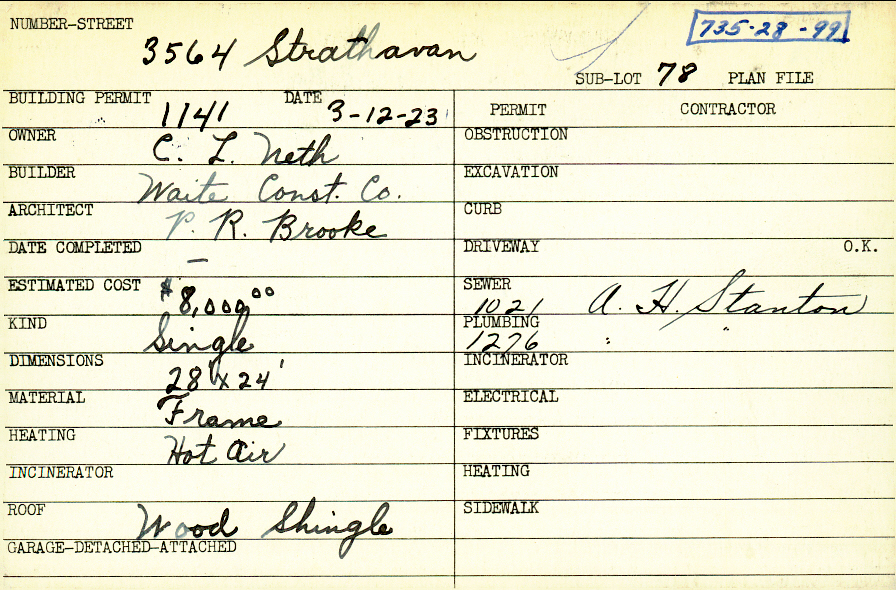 NUMBER-STREET 3564 Strathavan 735-28-99
SUB-LOT 78 PLAN FILE
BUILDING PERMIT 1141 DATE 3-12-23
OWNER C. L. Neth
BUILDER Waite Const. Co.
ARCHITECT P. R. Brooke
DATE COMPLETED —
ESTIMATED COST $8,000.00
KIND Single
DIMENSIONS 28' x 24'
MATERIAL Frame
HEATING Hot Air
INCINERATOR
ROOF Wood Shingle
GARAGE-DETACHED-ATTACHED
PERMIT CONTRACTOR
OBSTRUCTION
EXCAVATION
CURB
DRIVEWAY O.K.
SEWER 1021 A. H. Stanton
PLUMBING 1276 " "
INCINERATOR
ELECTRICAL
FIXTURES
HEATING
SIDEWALK